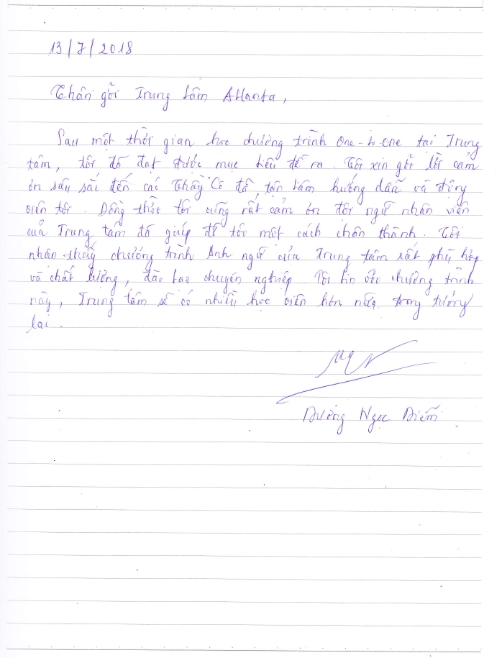 13/7/2018
Thân gởi Trung tâm Atlanta,
Sau một thời gian học chương trình One-to-one tại Trung
tâm, tôi đã đạt được mục tiêu đề ra. Tôi xin gởi lời cảm
ơn sâu sắc đến các Thầy Cô đã tận tâm hướng dẫn và động
viên tôi. Đồng thời tôi cũng rất cảm ơn đội ngũ nhân viên
của Trung tâm đã giúp đỡ tôi một cách chân thành. Tôi
nhận thấy chương trình Anh ngữ của Trung tâm rất phù hợp
và chất lượng, đào tạo chuyên nghiệp. Tôi tin với chương trình
này, Trung tâm sẽ có nhiều học viên hơn nữa trong tương
lai.
Dương Ngọc Diễm